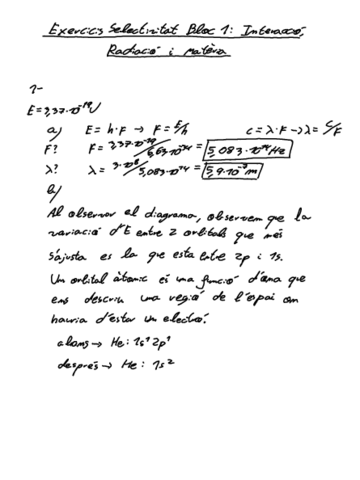 Exercicis Selectivitat Bloc 1: Interacció,
Radiació i matèria
1-
E=3,37·10⁻¹⁹J
a) E = h·F → F = E/h c = λ·F → λ = C/F
F? F = 3,37·10⁻¹⁹/6,63·10⁻³⁴ = 5,083·10¹⁴Hz
λ? λ = 3·10⁸/5,083·10¹⁴ = 5,9·10⁻⁷m
b)
Al observar el diagrama, observem que la
variació d'E entre 2 orbitals que més
s'ajusta es la que esta entre 2p i 1s.
Un orbital atòmic és una funció d'ona que
ens descriu una regió de l'espai on
hauria d'estar un electró.
abans → He: 1s¹ 2p¹
després → He: 1s²